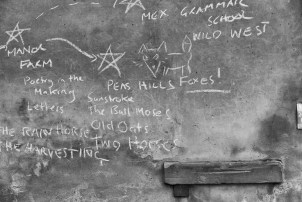 MEX. GRAMMAR
SCHOOL
WILD WEST
MANOR
FARM
Poetry in the
Making
Letters
PEAS HILLS FOXES!
Sunstroke
The Bull Moses
Old Oats
THE RAIN HORSE
TWO HORSES
THE HARVESTING